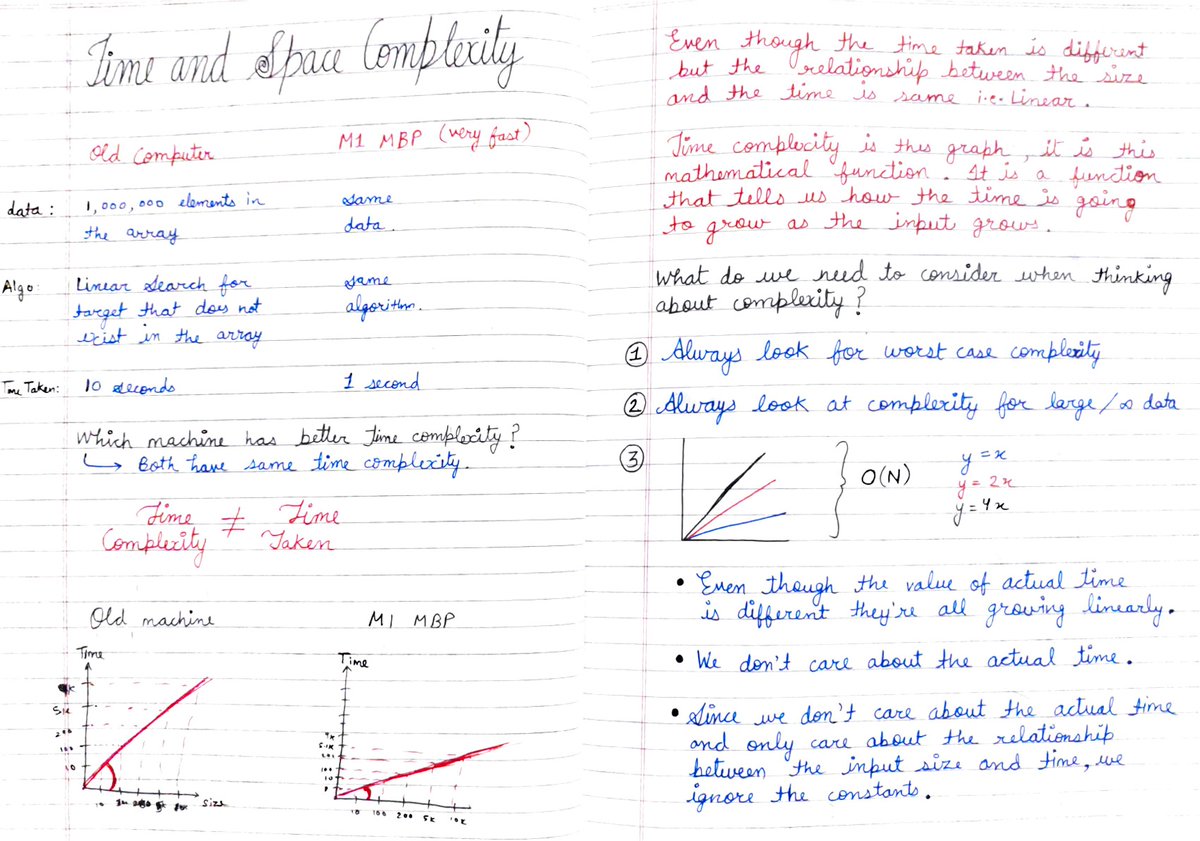 Time and Space Complexity
Old Computer
M1 MBP (very fast)
data:
1,000,000 elements in
the array
same
data.
Algo:
Linear Search for
target that does not
exist in the array
same
algorithm.
Time Taken:
10 seconds
1 second
Which machine has better Time complexity?
Both have same time complexity.
Time
Complexity
≠
Time
Taken
Old machine
M1 MBP
Time
5k
200
100
10
10
size
Time
100
10
10 100 200 5k 10k
Even though the time taken is different
but the relationship between the size
and the time is same i.e. Linear.
Time complexity is this graph, it is this
mathematical function. It is a function
that tells us how the time is going
to grow as the input grows.
What do we need to consider when thinking
about complexity?
① Always look for worst case complexity
② Always look at complexity for large/∞ data
③
O(N)
y = x
y = 2x
y = 4x
• Even though the value of actual time
is different they're all growing linearly.
• We don't care about the actual time.
• Since we don't care about the actual time
and only care about the relationship
between the input size and time, we
ignore the constants.